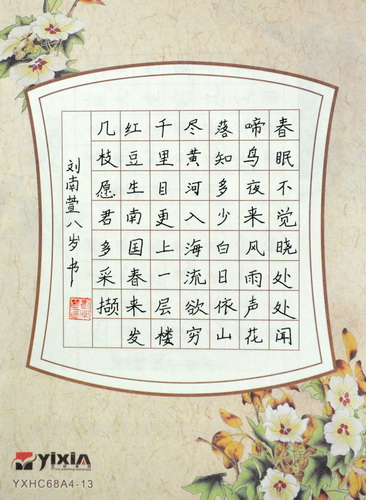 春眠不觉晓处处闻
啼鸟夜来风雨声花
落知多少白日依山
尽黄河入海流欲穷
千里目更上一层楼
红豆生南国春来发
几枝愿君多采撷
刘南萱八岁书
YXHC68A4-13